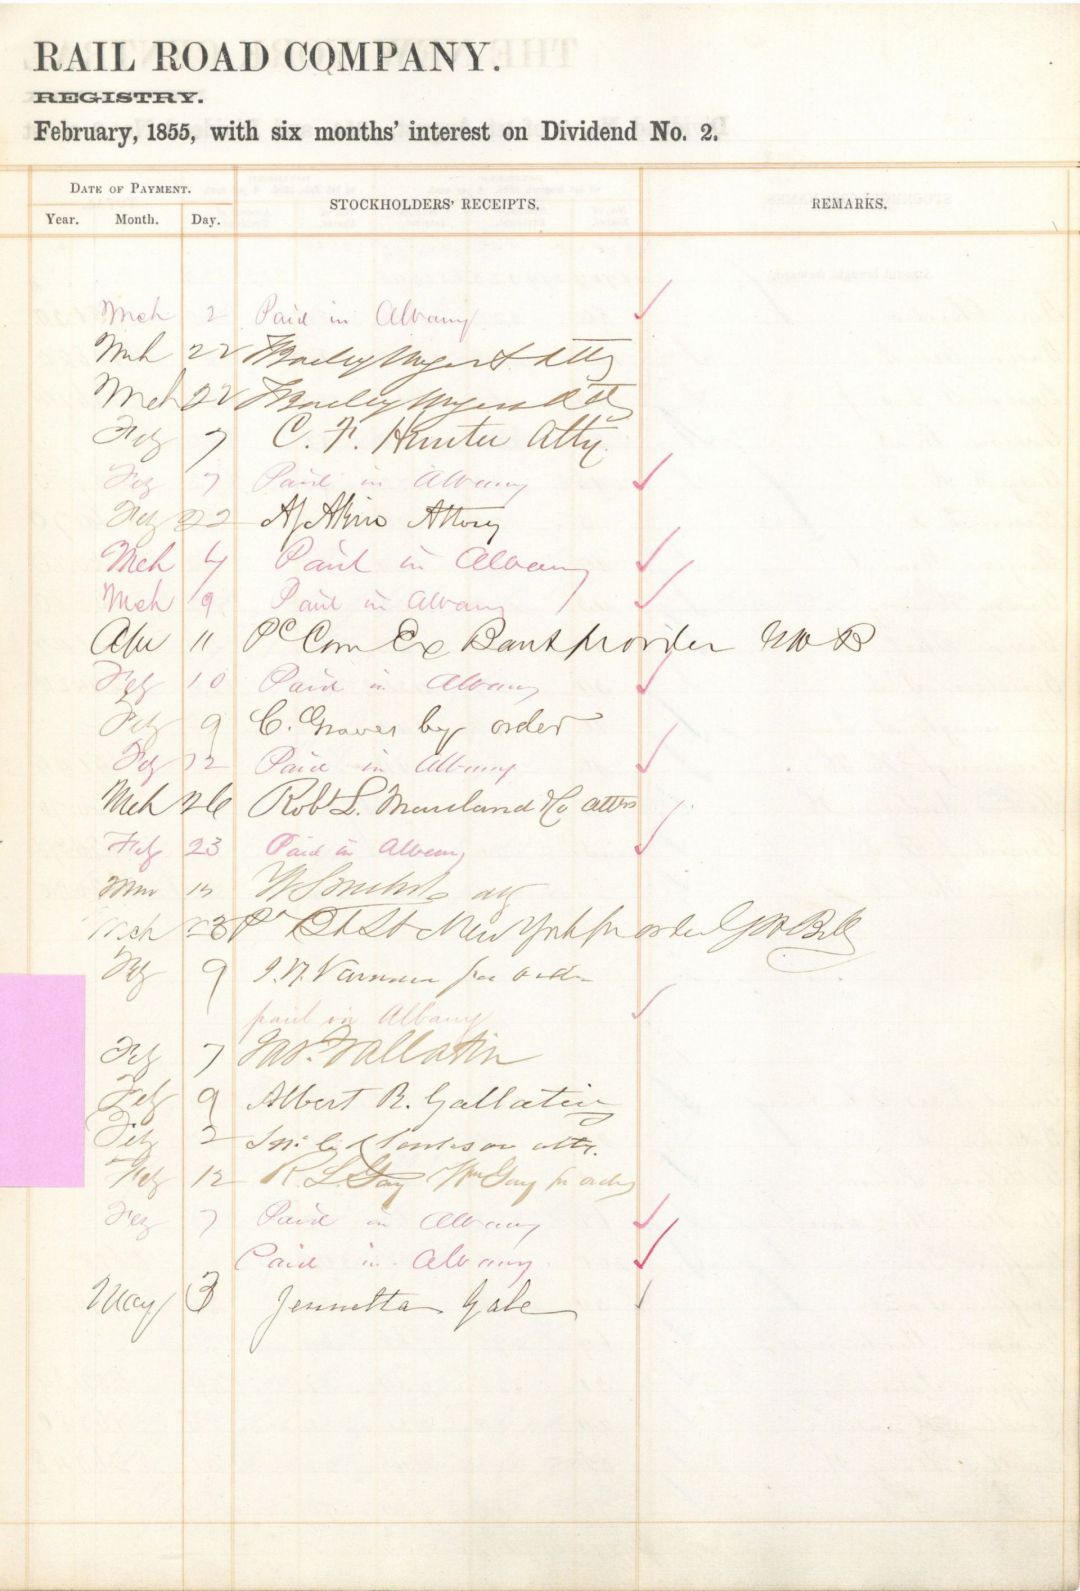 RAIL ROAD COMPANY.
REGISTRY.
February, 1855, with six months' interest on Dividend No. 2.
DATE OF PAYMENT.
Year. Month. Day. STOCKHOLDERS' RECEIPTS. REMARKS.
Mch 2 Paid in Albany
Mch 22 Atty
Mch 22
Feb 7 C. F. Hunter Atty.
Feb 7 Paid in Albany
Feb 22 Akin Attorny
Mch 4 Paid in Albany
Mch 9 Paid in Albany
11 Com Ex Bank pr order
Feb 10 Paid in Albany
Feb 9 C. Graves by order
Feb 12 Paid in Albany
Mch 26 Robt L. Maitland & Co attrs
Feb 23 Paid in Albany
Mch 23 New York pr order
Feb 9 Varnum per order
paid in Albany
Feb 7 Jas. Gallatin
Feb 9 Albert R. Gallatin
Feb 2
Feb 12 R. L. Gay Wm Gay
Feb 7 Paid in Albany
Paid in Albany.
May 3 Jennetta Gale